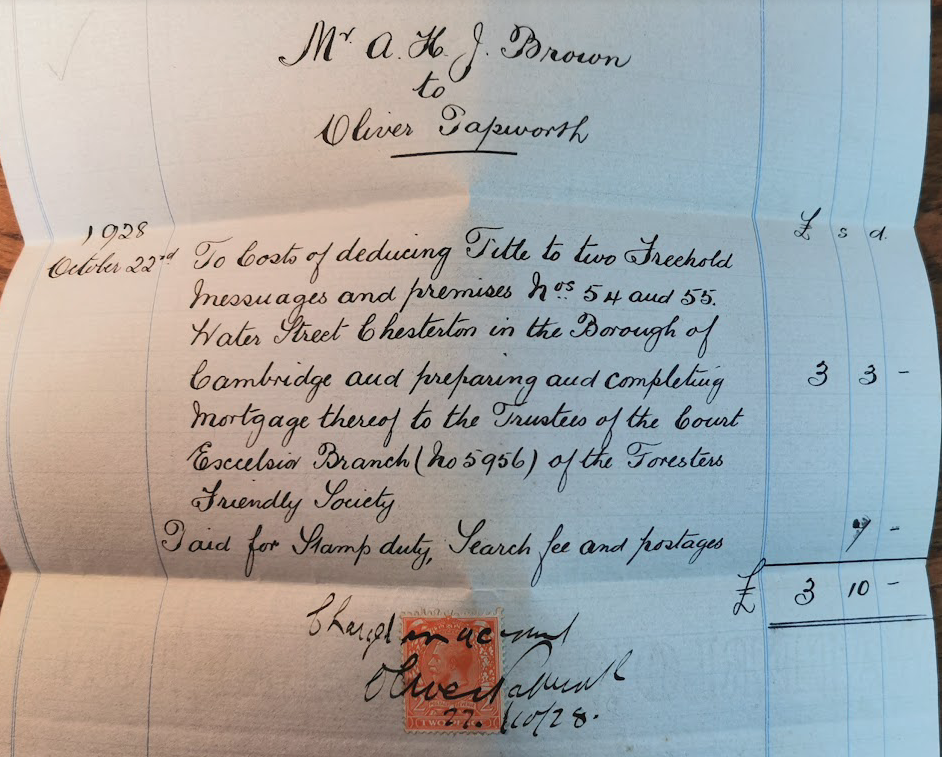 Mr. A. H. J. Brown
to
Oliver Papworth
£ s d.
1928
October 22nd To Costs of deducing Title to two Freehold
Messuages and premises Nos. 54 and 55.
Water Street Chesterton in the Borough of
Cambridge and preparing and completing 3 3 -
Mortgage thereof to the Trustees of the Court
Excelsior Branch (No 5956) of the Foresters
Friendly Society
Paid for Stamp duty, Search fee and postages 7 -
£ 3 10 -
Charged in account
Oliver Papworth
22. /10/28.
2 2
TWO PENCE